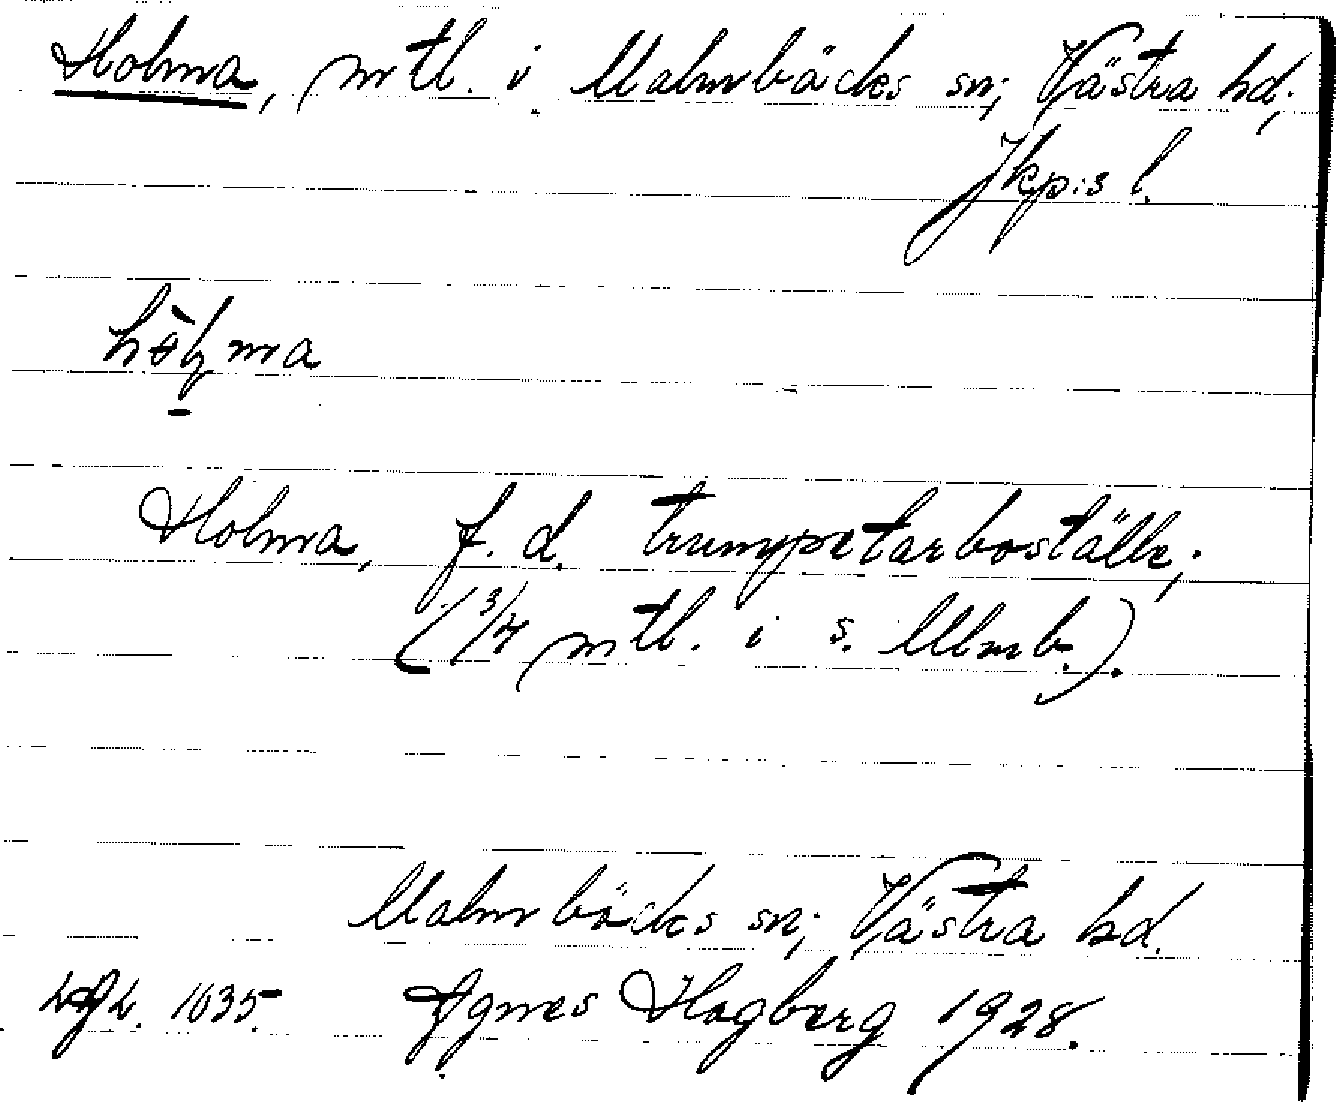 Holma, mtl. i Malmbäcks sn; Västra hd;
Jkp:s l.
Holma, f. d. trumpetarboställe;
(3/4 mtl. i s. Mlmb.).
Malmbäcks sn; Västra hd.
1035 Agnes Hagberg 1928.